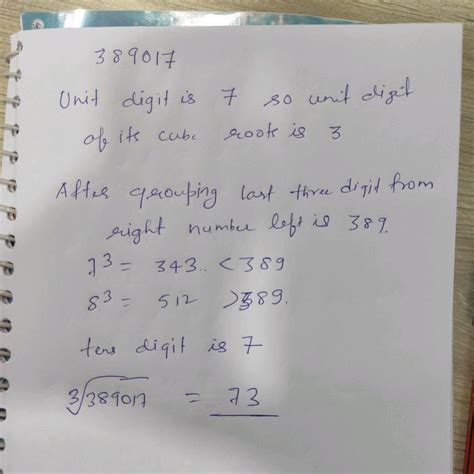 389017
Unit digit is 7 so unit digit
of its cube root is 3
After grouping last three digit from
right number left is 389.
7³ = 343.. < 389
8³ = 512 > 389.
tens digit is 7
3√389017 = 73